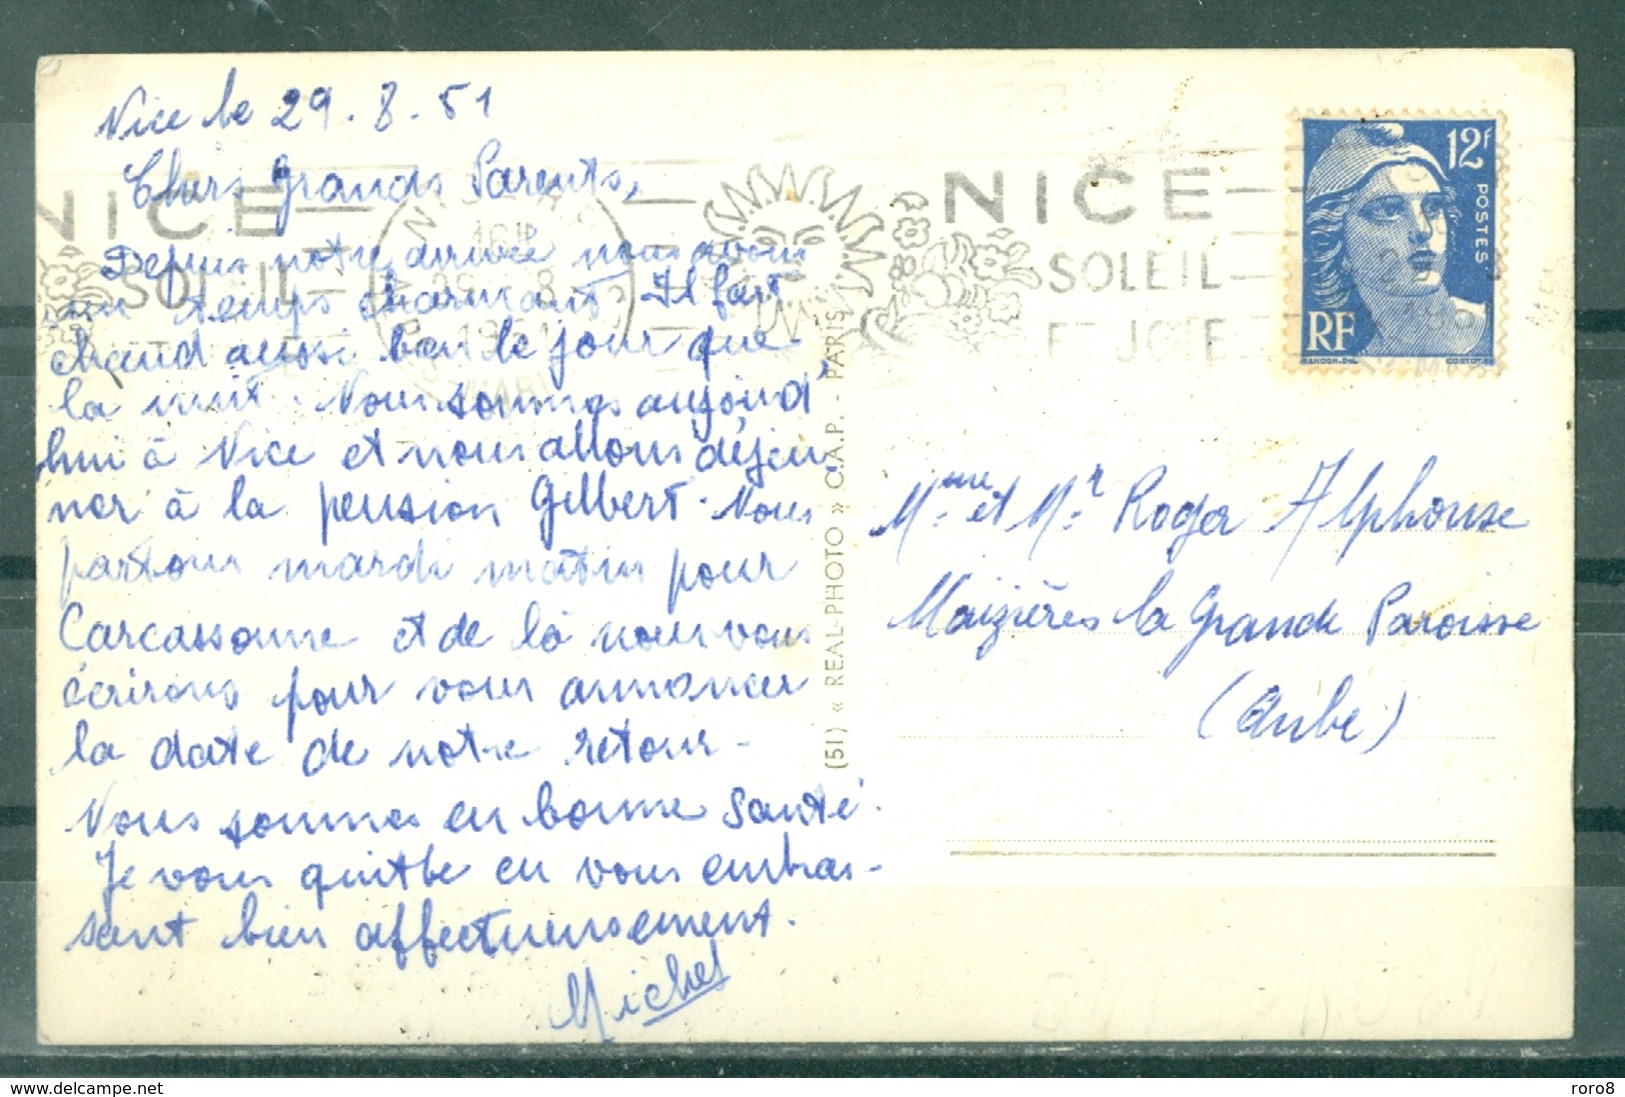 Nice le 29.8.51
Chers Grands Parents,
Depuis notre arrivée nous avons
un temps charmant Il fait
chaud aussi bien le jour que
la nuit. Nous sommes aujourd'
hui à Nice et nous allons déjeu
ner à la pension Gilbert. Nous
partons mardi matin pour
Carcassonne et de là nous vous
écrirons pour vous annoncer
la date de notre retour -
Nous sommes en bonne santé.
Je vous quitte en vous embras-
sant bien affectueusement.
Michel
NICE
SOLEIL
16H
29 - 8
1951
NICE
SOLEIL
ET JOIE
12F
POSTES
RF
GANDON.DEL
CORTOT.SC
(51) « REAL-PHOTO » C.A.P. - PARIS
Mme et Mr Roger Alphonse
Maizières la Grande Paroisse
(Aube)
https://www.delcampe.net
roro8